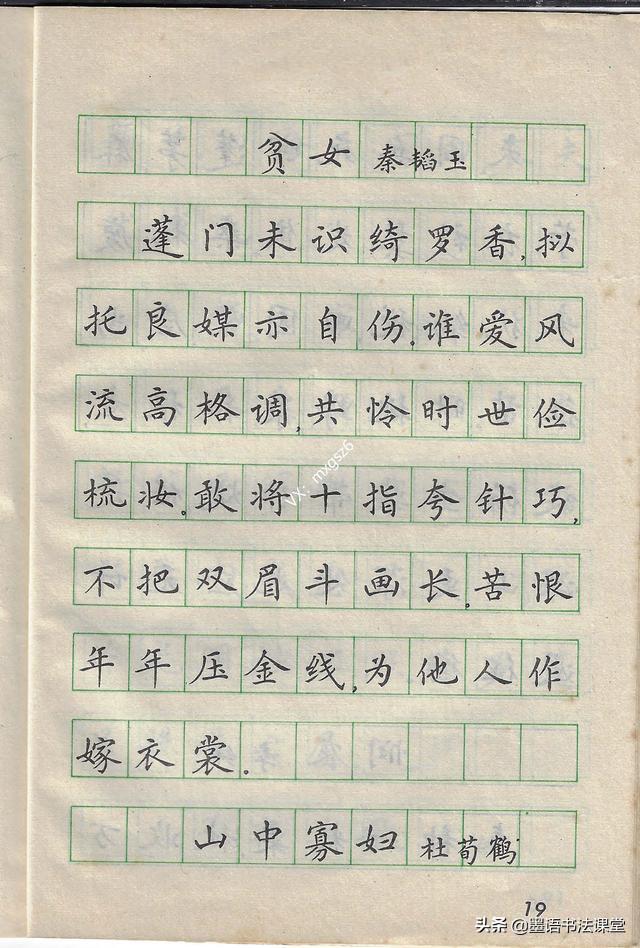 贫女 秦韬玉
蓬门未识绮罗香,拟
托良媒亦自伤.谁爱风
流高格调,共怜时世俭
梳妆.敢将十指夸针巧,
不把双眉斗画长.苦恨
年年压金线,为他人作
嫁衣裳.
山中寡妇 杜荀鹤
19
VX: mxgsz6
头条 @墨语书法课堂